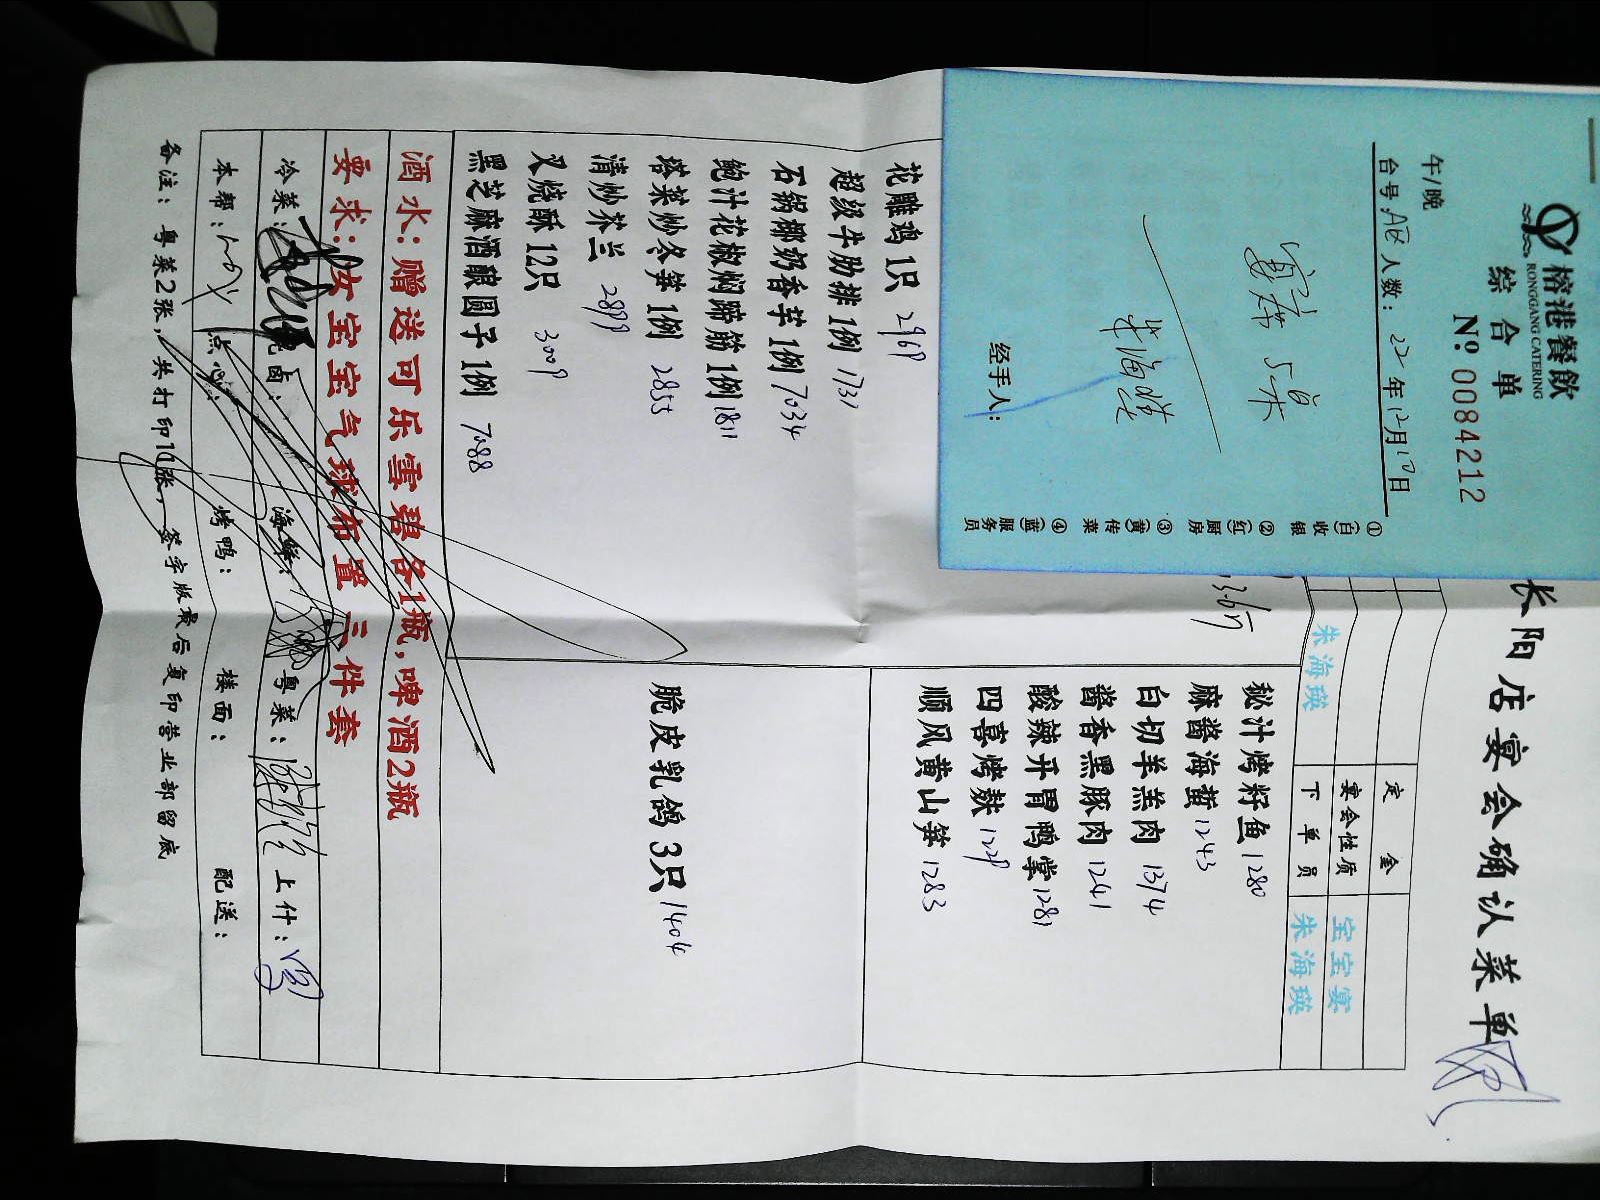 榕港餐飲
RONGGANG CATERING
综合单
午/晚
№ 0084212
台号:A区 人数: 22年12月17日
宴席 5桌
朱海瑛
经手人:
①(白)收银
②(红)厨房
③(黄)传菜
④(蓝)服务员
长阳店宴会确认菜单
定金
宴会性质 宝宝宴
朱海瑛 下单员 朱海瑛
秘汁烤籽鱼 1280
麻酱海蜇 1243
白切羊羔肉 1374
酱香黑豚肉 1241
酸辣开胃鸭掌 1281
四喜烤麸 1229
顺风黄山笋 1283
花雕鸡1只 2969
超级牛肋排1例 1731
石锅椰奶香芋1例 7034
鲍汁花椒焖蹄筋1例 1811
塔菜炒冬笋1例 2855
清炒芥兰 2899
叉烧酥12只 3009
黑芝麻酒酿圆子1例 7088
脆皮乳鸽3只 1404
酒水:赠送可乐雪碧各1瓶,啤酒2瓶
要求:女宝宝气球布置三件套
冷菜: 海鲜: 粤菜: 上什:
本帮: 点心: 烤鸭: 楼面: 配送:
备注:粤菜2张,共打印10张,签字版最后复印营业部留底